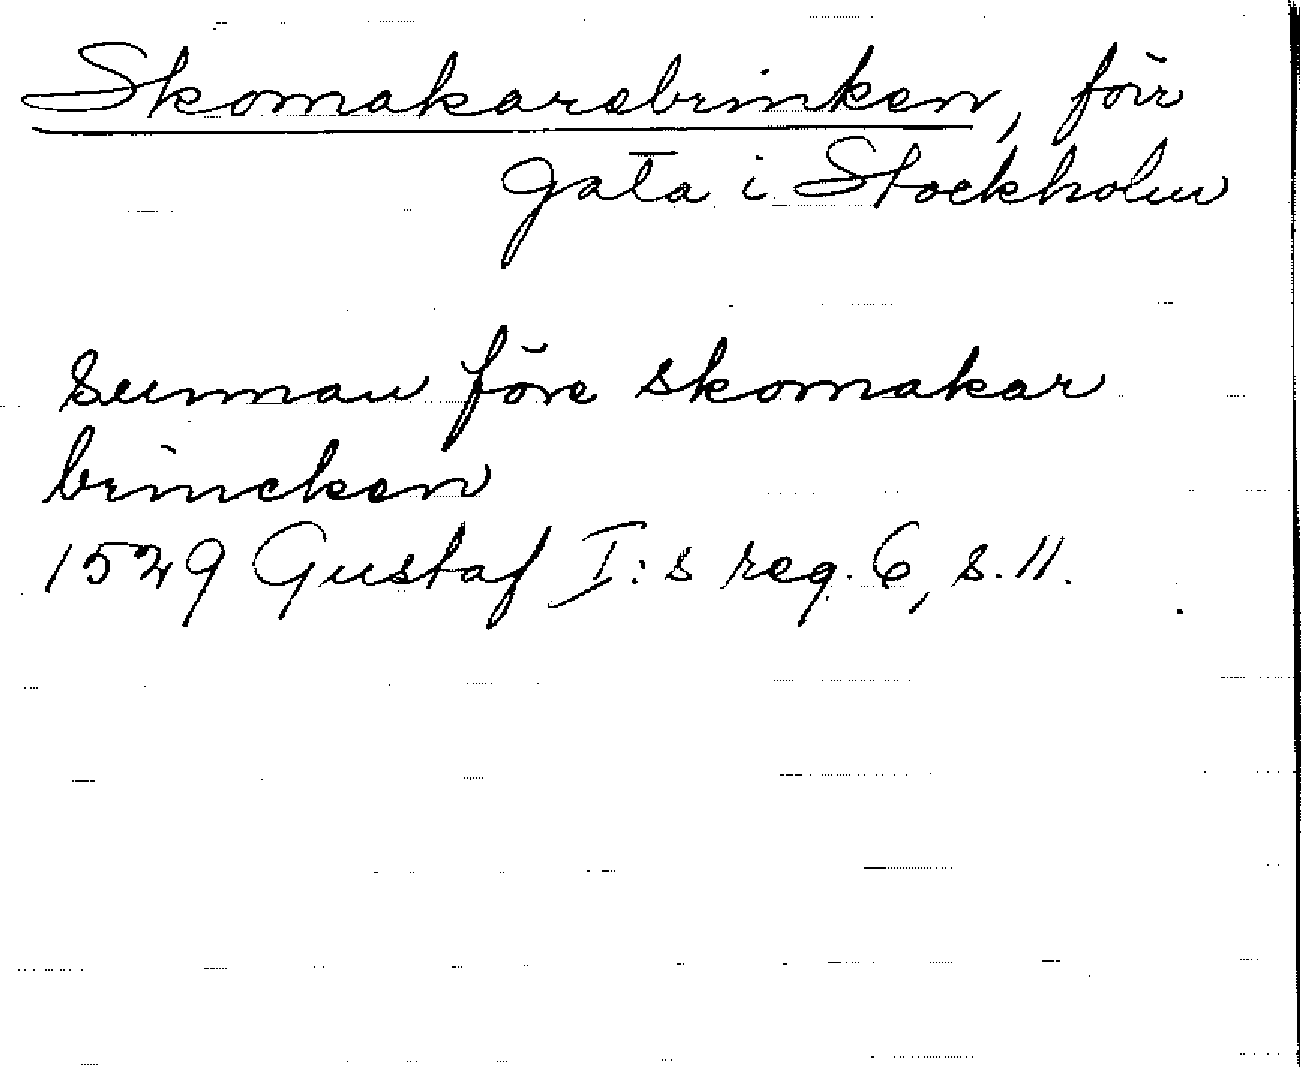 Skomakarebrinken, förr
gata i Stockholm
Sunnan före skomakar
brincken
1529 Gustaf I:s reg. 6, s. 11.